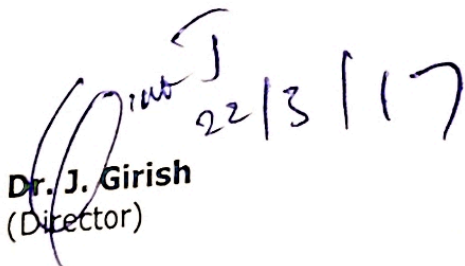 22/3/17
Dr. J. Girish
(Director)